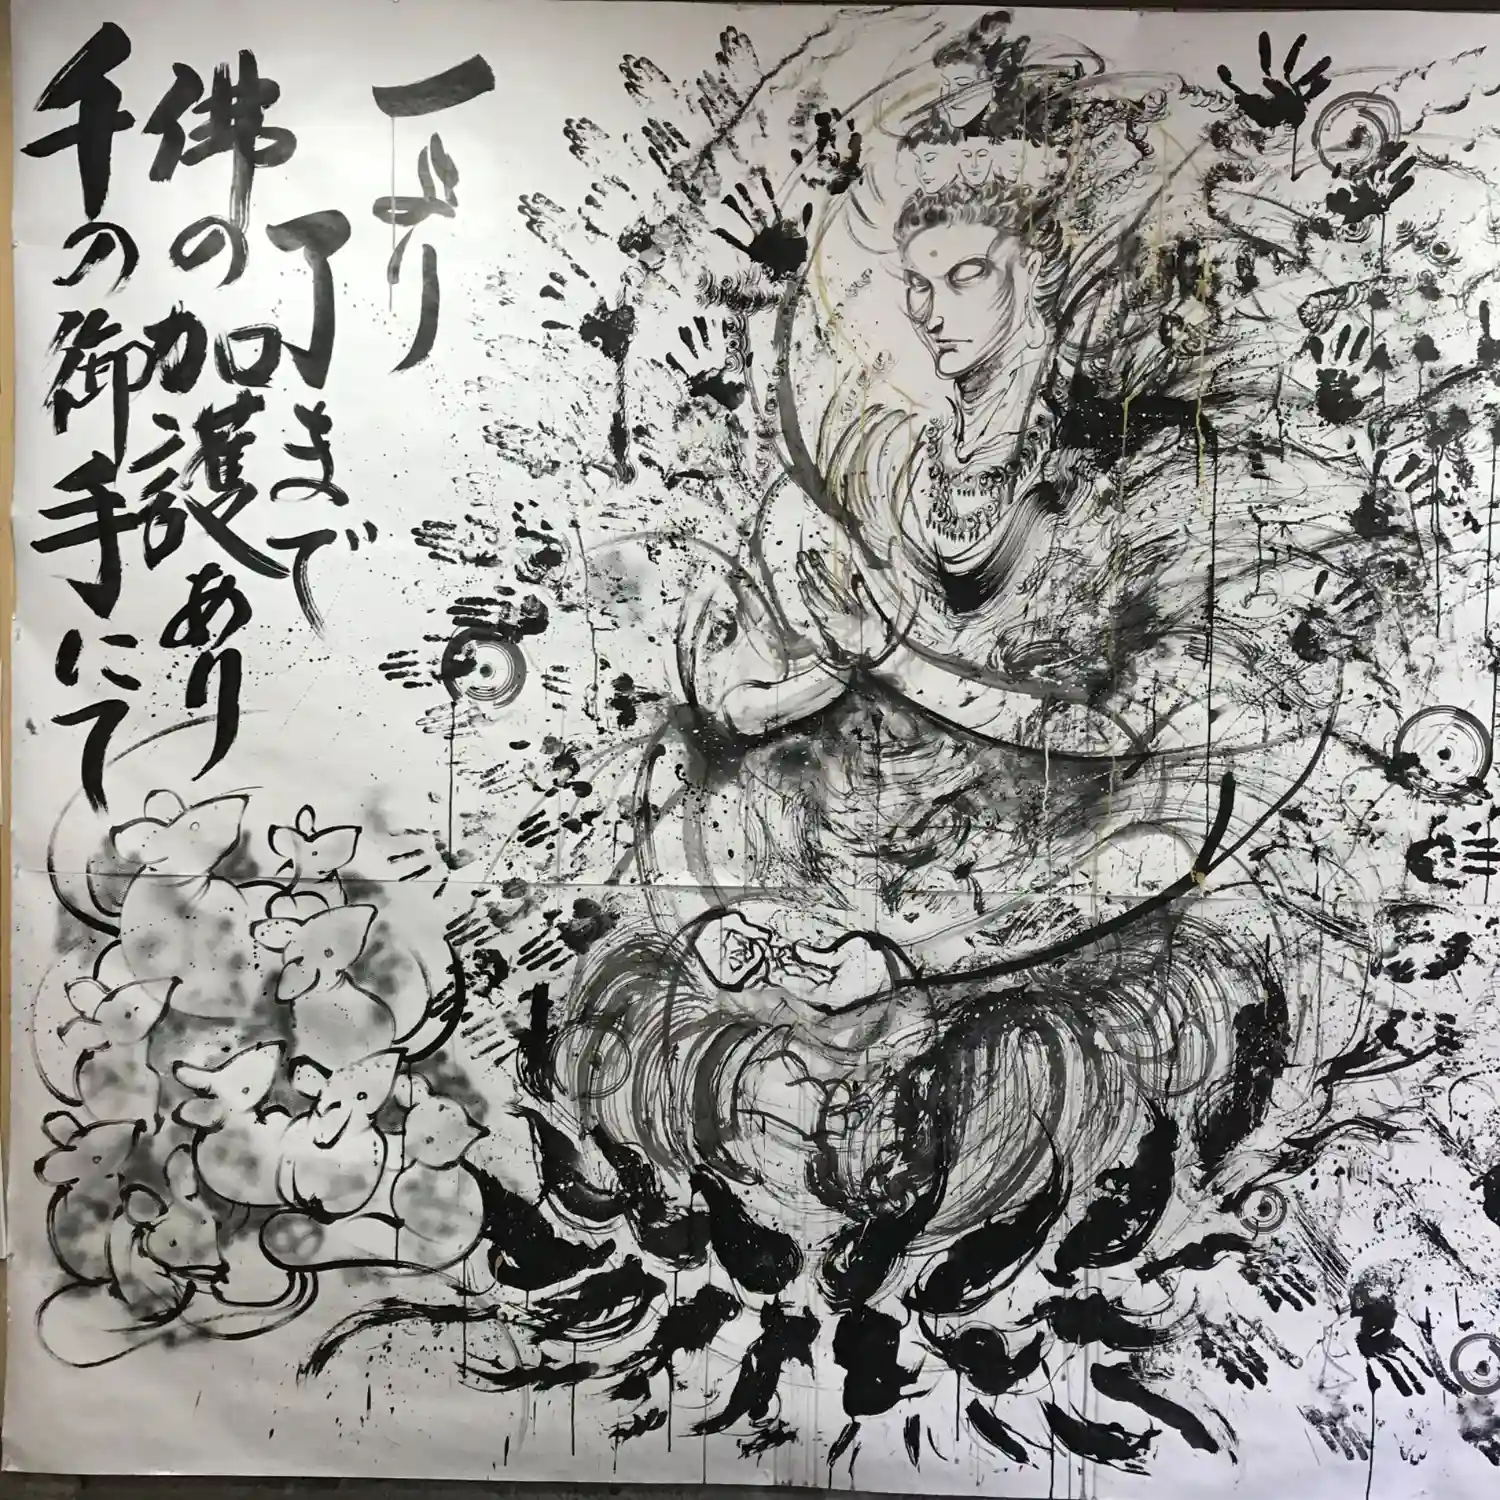 一より
了まで
佛の加護あり
千の御手にて